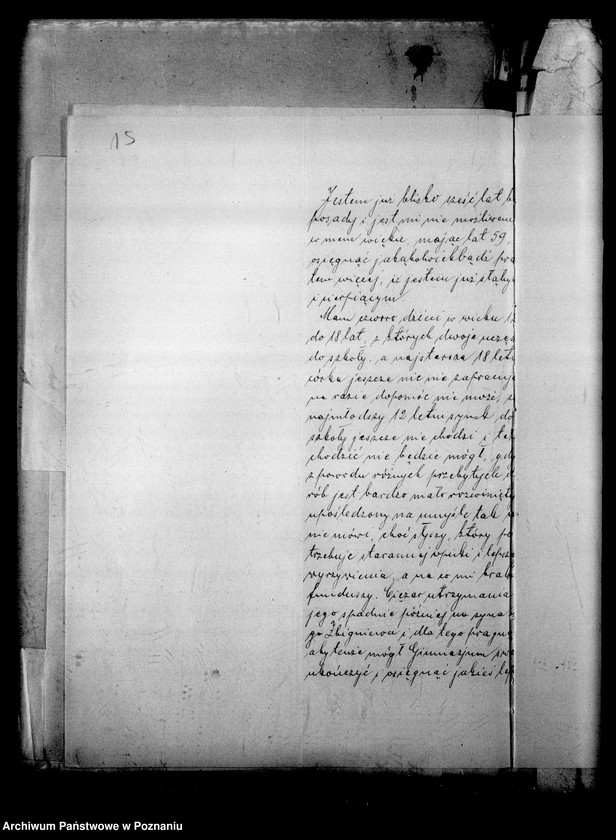 15
Jestem już blisko sześć lat b
posady i jest mi nie możliwem
w mem wieku, mając lat 59,
osięgnąć jakąkolwiekbądź po
tem więcej, iż jestem już słaby
i cierpiącym
Mam czworo dzieci w wieku 12
do 18 lat, z których dwoje uczę
do szkoły, a najstarsza 18 let
córka jeszcze nic nie zapracuje
na razie dopomóc nie może,
najmłodszy 12 letni synek do
szkoły jeszcze nie chodzi i te
chodzić nie będzie mógł, gdy
z powodu różnych przebytych
rób jest bardzo mało rozwinięty
upośledzony na umyśle tak
nie mówi, choć słyszy, który po
trzebuje starannej opieki i lepsze
wyżywienia, a na co mi brak
funduszy. Ciężar utrzymania
jego spadnie później na syna
go Zbigniewa i dla tego pragnę
aby tenże mógł Gimnazjum
ukończyć i osięgnąć jakieś lep
Archiwum Państwowe w Poznaniu